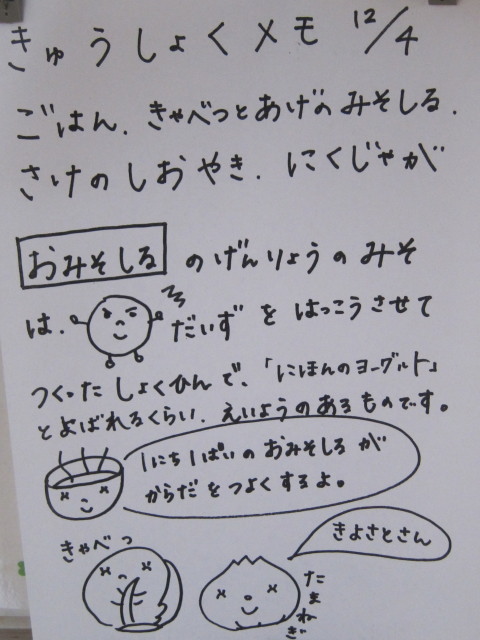 きゅうしょくメモ 12/4
ごはん. きゃべつとあげのみそしる.
さけのしおやき. にくじゃが
おみそしる のげんりょうのみそ
は. だいず を はっこうさせて
つくった しょくひんで、「にほんのヨーグルト」
とよばれるくらい. えいようのあるものです。
1にち1ぱいのおみそしるが
からだをつよくするよ。
きよさとさん
きゃべつ
たまねぎ